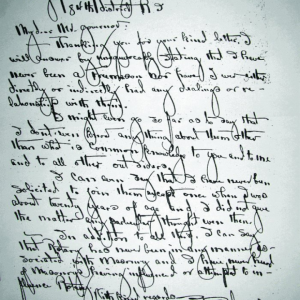 My dear Mr. Governor:
Thanking you for your kind letter, I
will answer by stating that I have
never been a nor have I ever either
directly or indirectly had any dealings or re-
lationship with them.
I might even go so far as to say that
I don't even know anything about them other
than what is common knowledge to you and to me
and to all other outsiders.
I can say that I have never been
solicited to join them except one when I was
about twenty years of age but I did not give
the matter any particular thought even then.
In addition to all that I can say
that Rotary has never been in any manner as-
sociated with Masonry and I have never heard
of Masonry being influenced or attempt to in-
fluence Rotary.
With kind regards